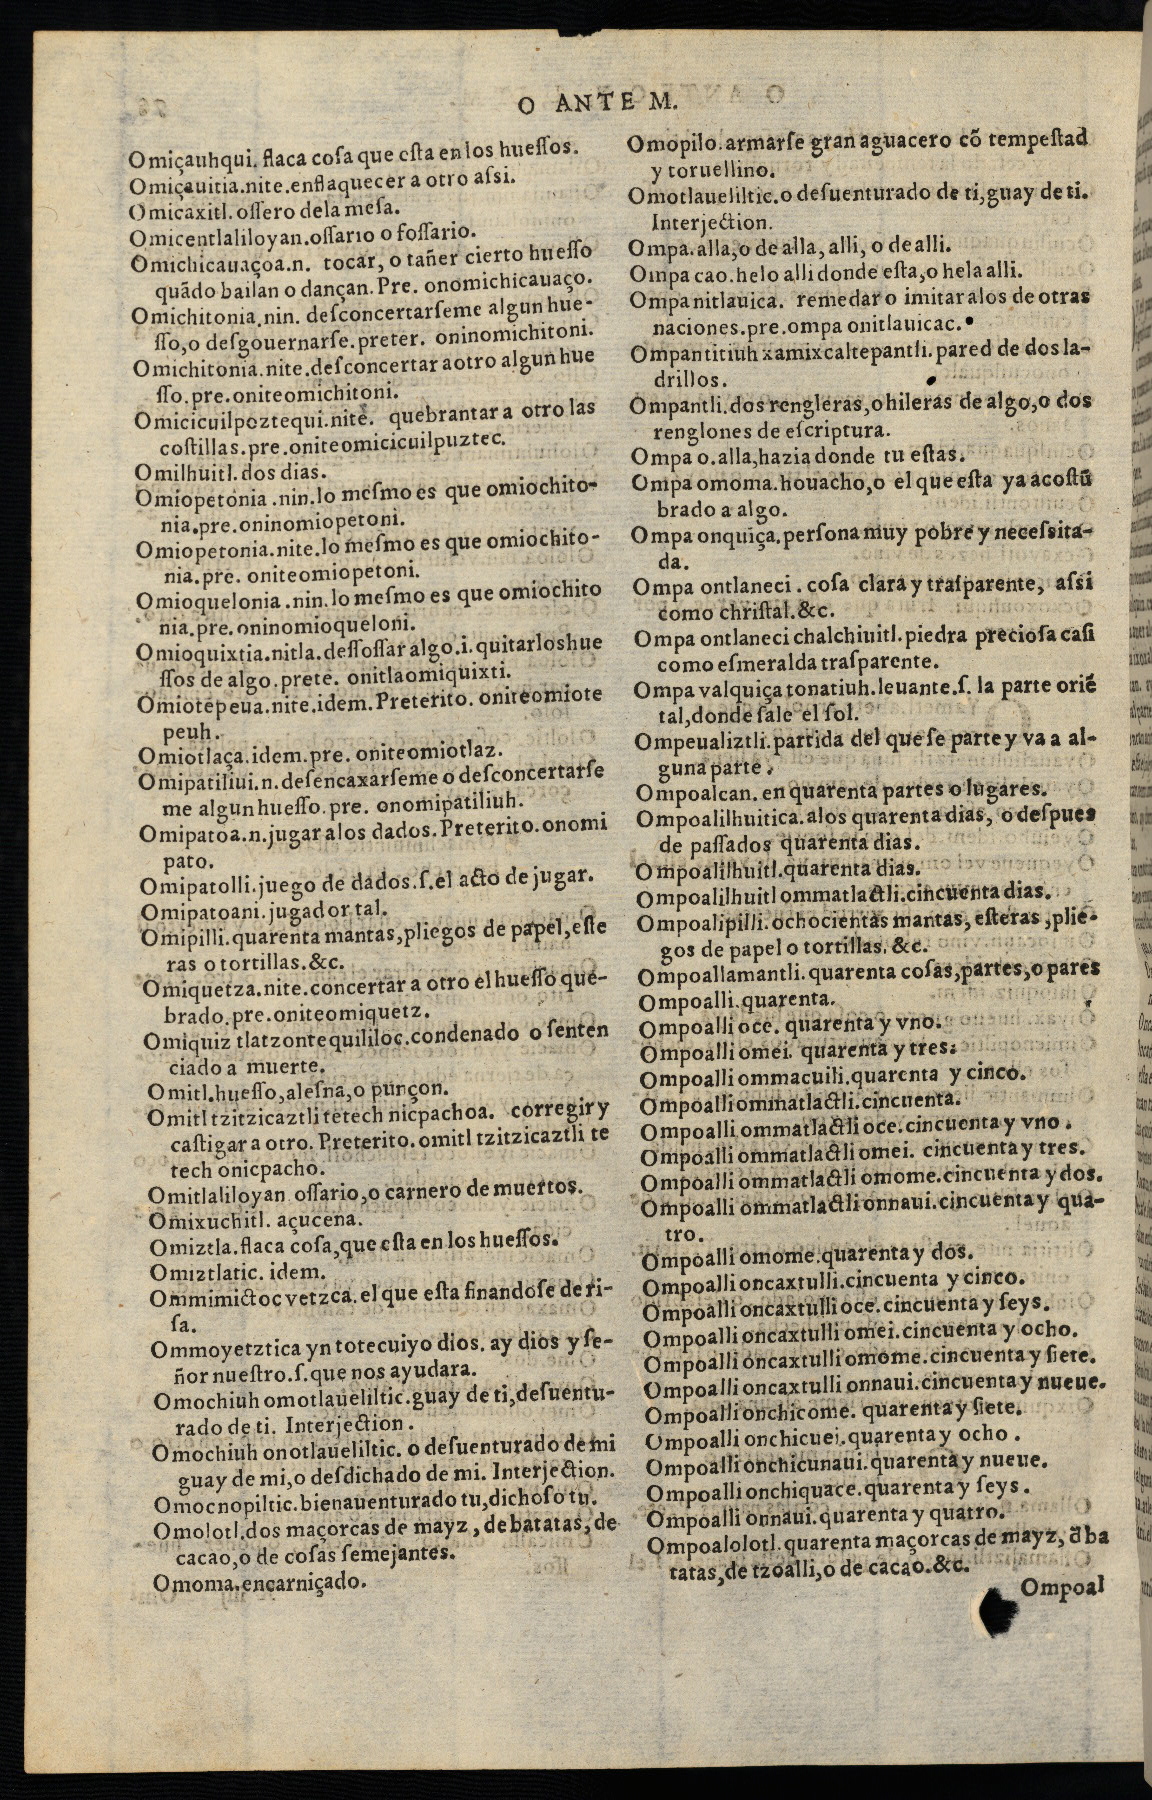 O ANTE M.
Omiçauhqui. flaca cosa que esta en los huessos.
Omiçauitia.nite.enflaquecer a otro assi.
Omicaxitl. ossero dela mesa.
Omicentlaliloyan.ossario o fossario.
Omichicauaçoa.n. tocar, o tañer cierto huesso
quãdo bailan o dançan.Pre. onomichicauaço.
Omichitonia.nin. desconcertarseme algun hue-
sso,o desgouernarse.preter. oninomichitoni.
Omichitonia.nite.desconcertar aotro algun hue
sso.pre.oniteomichitoni.
Omicicuilpoztequi.nite. quebrantar a otro las
costillas.pre.oniteomicicuilpuztec.
Omilhuitl.dos dias.
Omiopetonia.nin.lo mesmo es que omiochito-
nia.pre.oninomiopetoni.
Omiopetonia.nite.lo mesmo es que omiochito-
nia.pre. oniteomiopetoni.
Omioquelonia.nin.lo mesmo es que omiochito
nia.pre.oninomioqueloni.
Omioquixtia.nitla.dessossar algo.i.quitarloshue
ssos de algo.prete. onitlaomiquixti.
Omiotepeua.nite.idem.Preterito. oniteomiote
peuh.
Omiotlaça.idem.pre. oniteomiotlaz.
Omipatiliui.n.desencaxarseme o desconcertarse
me algun huesso.pre. onomipatiliuh.
Omipatoa.n.jugar alos dados.Preterito.onomi
pato.
Omipatolli.juego de dados.s.el acto de jugar.
Omipatoani.jugador tal.
Omipilli.quarenta mantas,pliegos de papel,este
ras o tortillas.&c.
Omiquetza.nite.concertar a otro el huesso que-
brado.pre.oniteomiquetz.
Omiquiz tlatzontequililoc.condenado o senten
ciado a muerte.
Omitl.huesso,alesna,o punçon.
Omitl tzitzicaztli tetech nicpachoa. corregir y
castigar a otro. Preterito.omitl tzitzicaztli te
tech onicpacho.
Omitlaliloyan ossario,o carnero de muertos.
Omixuchitl. açucena.
Omiztla.flaca cosa,que esta en los huessos.
Omiztlatic. idem.
Ommimictoc vetzca.el que esta finandose de ri-
sa.
Ommoyetztica yn totecuiyo dios. ay dios y se-
ñor nuestro.s.que nos ayudara.
Omochiuh omotlaueliltic.guay de ti,desuentu-
rado de ti. Interjection.
Omochiuh onotlaueliltic. o desuenturado de mi
guay de mi,o desdichado de mi. Interjection.
Omocnopiltic.bienauenturado tu,dichoso tu.
Omolotl.dos maçorcas de mayz, de batatas, de
cacao,o de cosas semejantes.
Omoma.encarniçado.
Omopilo.armarse gran aguacero cõ tempestad
y toruellino.
Omotlaueliltic.o desuenturado de ti,guay de ti.
Interjection.
Ompa.alla,o de alla, alli, o de alli.
Ompa cao.helo alli donde esta,o hela alli.
Ompa nitlauica. remedar o imitar alos de otras
naciones.pre.ompa onitlauicac.
Ompantitiuh xamixcaltepantli.pared de dos la-
drillos.
Ompantli.dos rengleras,o hileras de algo,o dos
renglones de escriptura.
Ompa o.alla,hazia donde tu estas.
Ompa omoma.houacho,o el que esta ya acostũ
brado a algo.
Ompa onquiça.persona muy pobre y necessita-
da.
Ompa ontlaneci. cosa clara y trasparente, assi
como christal.&c.
Ompa ontlaneci chalchiuitl.piedra preciosa casi
como esmeralda trasparente.
Ompa valquiça tonatiuh.leuante.s. la parte oriẽ
tal,donde sale el sol.
Ompeualiztli.partida del que se parte y va a al-
guna parte.
Ompoalcan. en quarenta partes o lugares.
Ompoalilhuitica.alos quarenta dias, o despues
de passados quarenta dias.
Ompoalilhuitl.quarenta dias.
Ompoalilhuitl ommatlactli.cincuenta dias.
Ompoalipilli.ochocientas mantas, esteras,plie-
gos de papel o tortillas.&c.
Ompoallamantli.quarenta cosas,partes,o pares
Ompoalli.quarenta.
Ompoalli oce. quarenta y vno.
Ompoalli omei. quarenta y tres.
Ompoalli ommacuili.quarenta y cinco.
Ompoalli ommatlactli.cincuenta.
Ompoalli ommatlactli oce.cincuenta y vno.
Ompoalli ommatlactli omei. cincuenta y tres.
Ompoalli ommatlactli omome.cincuenta y dos.
Ompoalli ommatlactli onnaui.cincuenta y qua-
tro.
Ompoalli omome.quarenta y dos.
Ompoalli oncaxtulli.cincuenta y cinco.
Ompoalli oncaxtulli oce.cincuenta y seys.
Ompoalli oncaxtulli omei.cincuenta y ocho.
Ompoalli oncaxtulli omome.cincuenta y siete.
Ompoalli oncaxtulli onnaui.cincuenta y nueue.
Ompoalli onchicome. quarenta y siete.
Ompoalli onchicuei.quarenta y ocho.
Ompoalli onchicunaui.quarenta y nueue.
Ompoalli onchiquace.quarenta y seys.
Ompoalli onnaui.quarenta y quatro.
Ompoalolotl.quarenta maçorcas de mayz, d̃ ba
tatas,de tzoalli,o de cacao.&c.
Ompoal